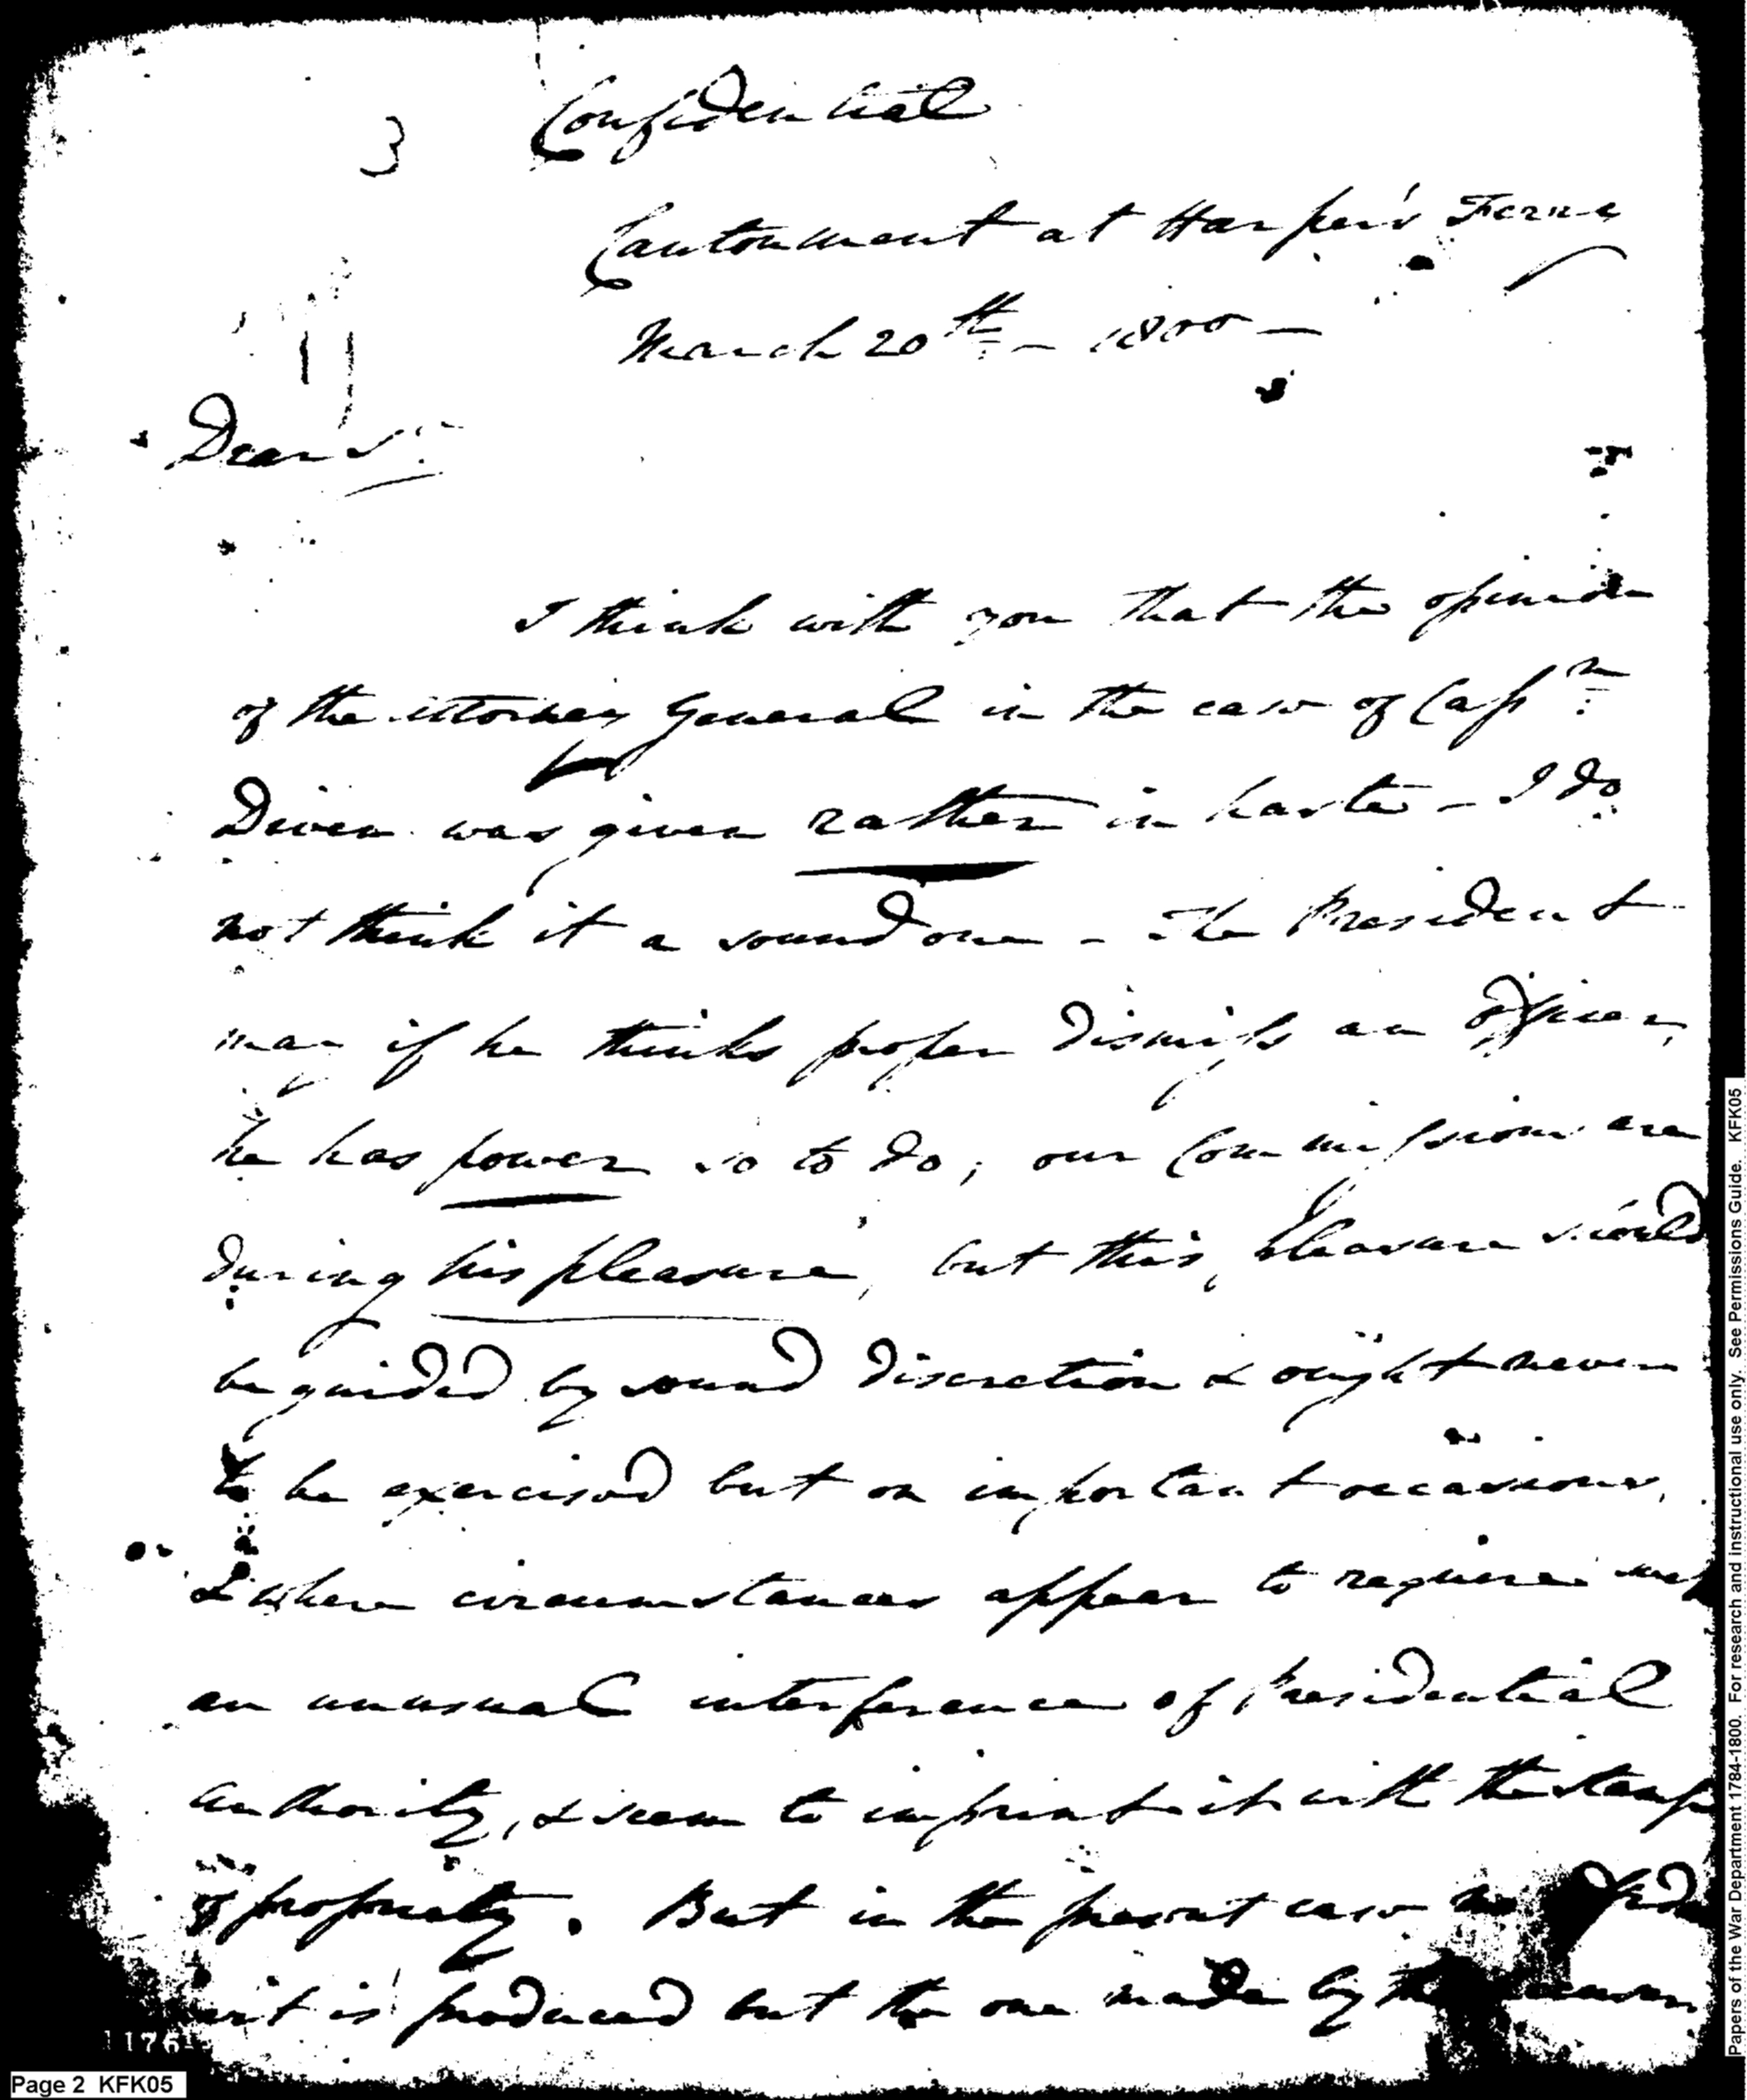 3 Confidential
Cantonment at Harper's Ferry
March 20th - 1800 -
Dear Sr
I think with you that the opinion
of the Attorney General in the case of Capn
Diven was given rather in haste - I do
not think it a sound one - The President
may if he thinks proper dismiss an officer,
he has power so to do; our Commissions are
during his pleasure, but this pleasure should
be guided by sound discretion & ought never
to be exercised but on important occasions,
& where circumstances appear to require such
an unusual interference of Presidential
authority, & seem to imprint it with the stamp
of propriety. But in the present case no
is produced but the one made by the
1176
Page 2 KFK05
Papers of the War Department 1784-1800. For research and instructional use only. See Permissions Guide. KFK05